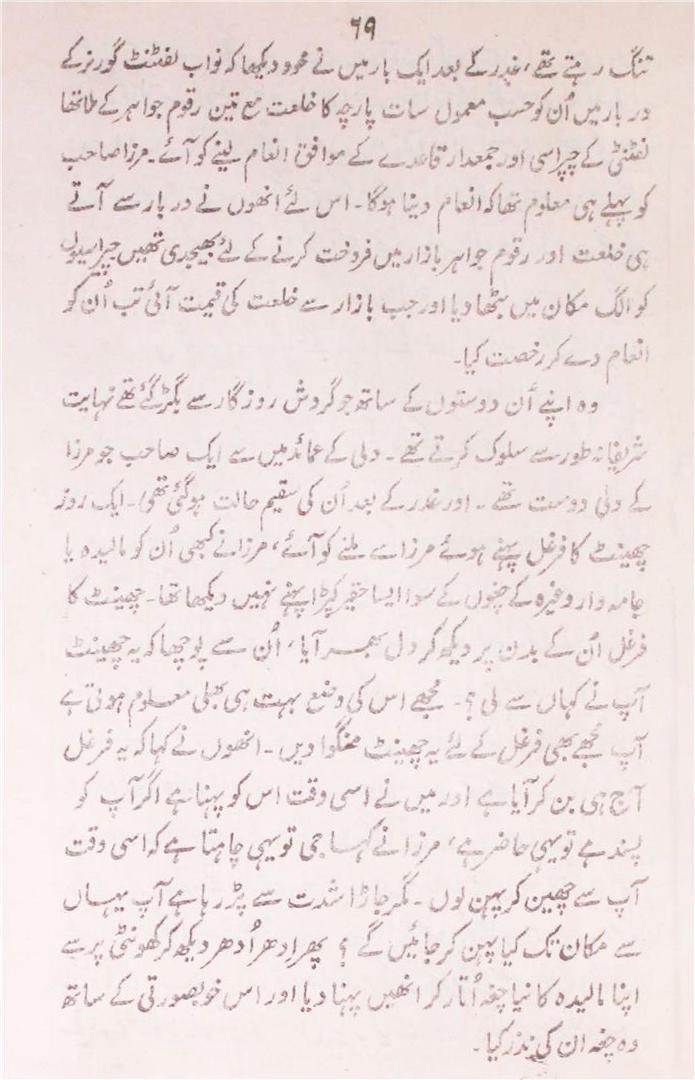 ۶۹
تنگ رہتے تھے، غدر کے بعد ایک بار میں نے خود دیکھا کہ نواب لفٹنٹ گورنر کے
دربار میں اُن کو حسب معمول سات پارچہ کا خلعت مع تین رقوم جواہر کے ملا تھا
لفٹنٹی کے چپراسی اور جمعدار قاعدے کے موافق انعام لینے کو آئے۔ مرزا صاحب
کو پہلے ہی معلوم تھا کہ انعام دینا ہوگا۔ اس لئے انھوں نے دربار سے آتے
ہی خلعت اور رقوم جواہر بازار میں فروخت کرنے کے لئے بھیجدی تھیں۔ چپراسیوں
کو الگ مکان میں بٹھا دیا اور جب بازار سے خلعت کی قیمت آئی تب اُن کو
انعام دے کر رخصت کیا۔
وہ اپنے اُن دوستوں کے ساتھ جو گردش روزگار سے بگڑ گئے تھے نہایت
شریفانہ طور سے سلوک کرتے تھے۔ دلی کے عمائد میں سے ایک صاحب جو مرزا
کے دلی دوست تھے۔ اور غدر کے بعد اُن کی سقیم حالت ہو گئی تھی۔ ایک روز
چھینٹ کا فرغل پہنے ہوئے مرزا سے ملنے کو آئے، مرزا نے کبھی اُن کو مالیدہ یا
جامہ وار وغیرہ کے چغوں کے سوا ایسا حقیر کپڑا پہنے نہیں دیکھا تھا۔ چھینٹ کا
فرغل اُن کے بدن پر دیکھ کر دل بھر آیا، اُن سے پوچھا کہ یہ چھینٹ
آپ نے کہاں سے لی؟۔ مجھے اس کی وضع بہت ہی بھلی معلوم ہوتی ہے
آپ مجھے بھی فرغل کے لئے یہ چھینٹ منگوا دیں۔ انھوں نے کہا کہ یہ فرغل
آج ہی بن کر آیا ہے اور میں نے اسی وقت اس کو پہنا ہے اگر آپ کو
پسند ہے تو یہی حاضر ہے، مرزا نے کہا جی تو یہی چاہتا ہے کہ اسی وقت
آپ سے چھین کر پہن لوں۔ مگر جاڑا شدت سے پڑ رہا ہے آپ یہاں
سے مکان تک کیا پہن کر جائیں گے؟ پھر ادھر اُدھر دیکھ کر کھونٹی پر سے
اپنا مالیدہ کا نیا چغہ اُتار کر انھیں پہنا دیا اور اس خوبصورتی کے ساتھ
وہ چغہ ان کی نذر کیا۔